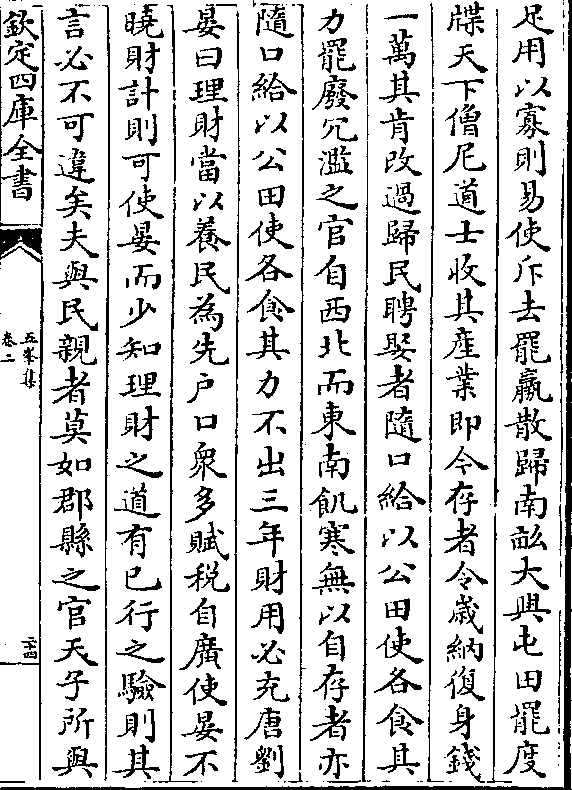 足用以寡則易使斥去罷羸散歸南畝大興屯田罷度
牒天下僧尼道士收其産業即令存者令歳納復身錢
一萬其肯改過歸民聘娶者隨口給以公田使各食其
力罷廢冗濫之官自西北而東南飢寒無以自存者亦
隨口給以公田使各食其力不出三年財用必充唐劉
晏曰理財當以養民為先户口衆多賦税自廣使晏不
曉財計則可使晏而少知理財之道有已行之驗則其
言必不可違矣夫與民親者莫如郡縣之官天子所與
欽定四庫全書
五峯集
卷二
二十四